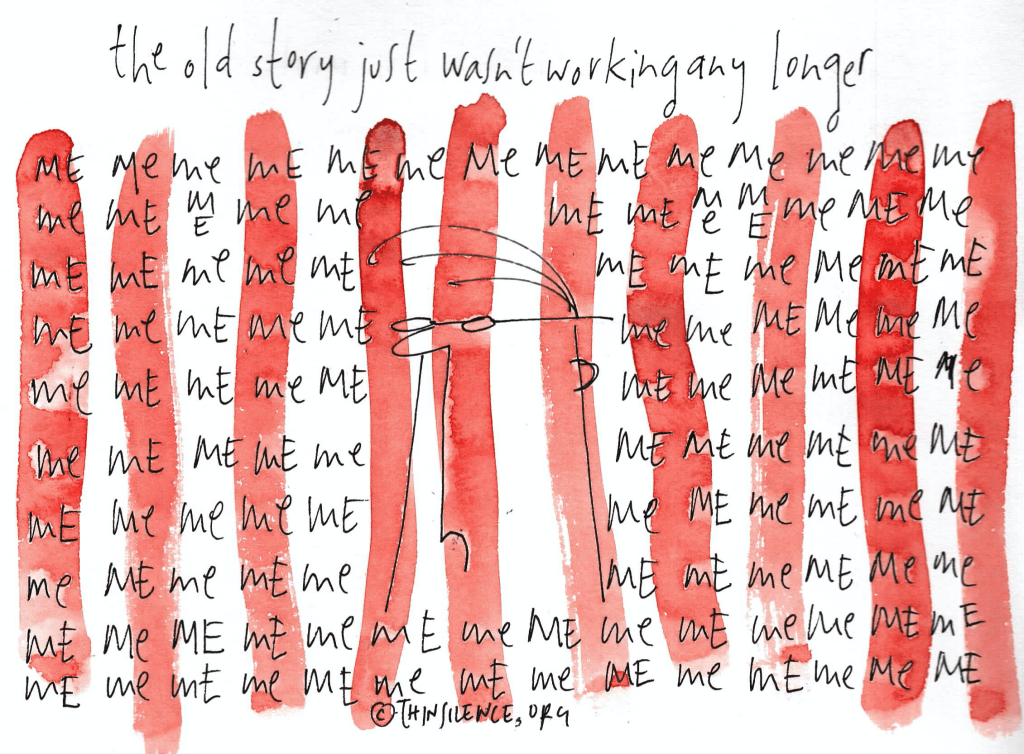 the old story just wasn't working any longer
ME Me me mE mE me Me ME mE me Me me Me me
me mE ME me me mE mE Me ME me ME Me
mE mE me me mE mE mE me Me mE mE
mE me mE Me ME me me ME Me me Me
me mE mE me ME mE me Me mE ME Me
me mE ME mE me ME ME me mE me ME
mE me me me ME Me ME me mE me ME
me ME me mE me ME mE me ME Me me
mE Me ME mE me mE me ME me mE me me ME mE
mE me mE me ME me mE me ME me mE me Me ME
© THINSILENCE.ORG